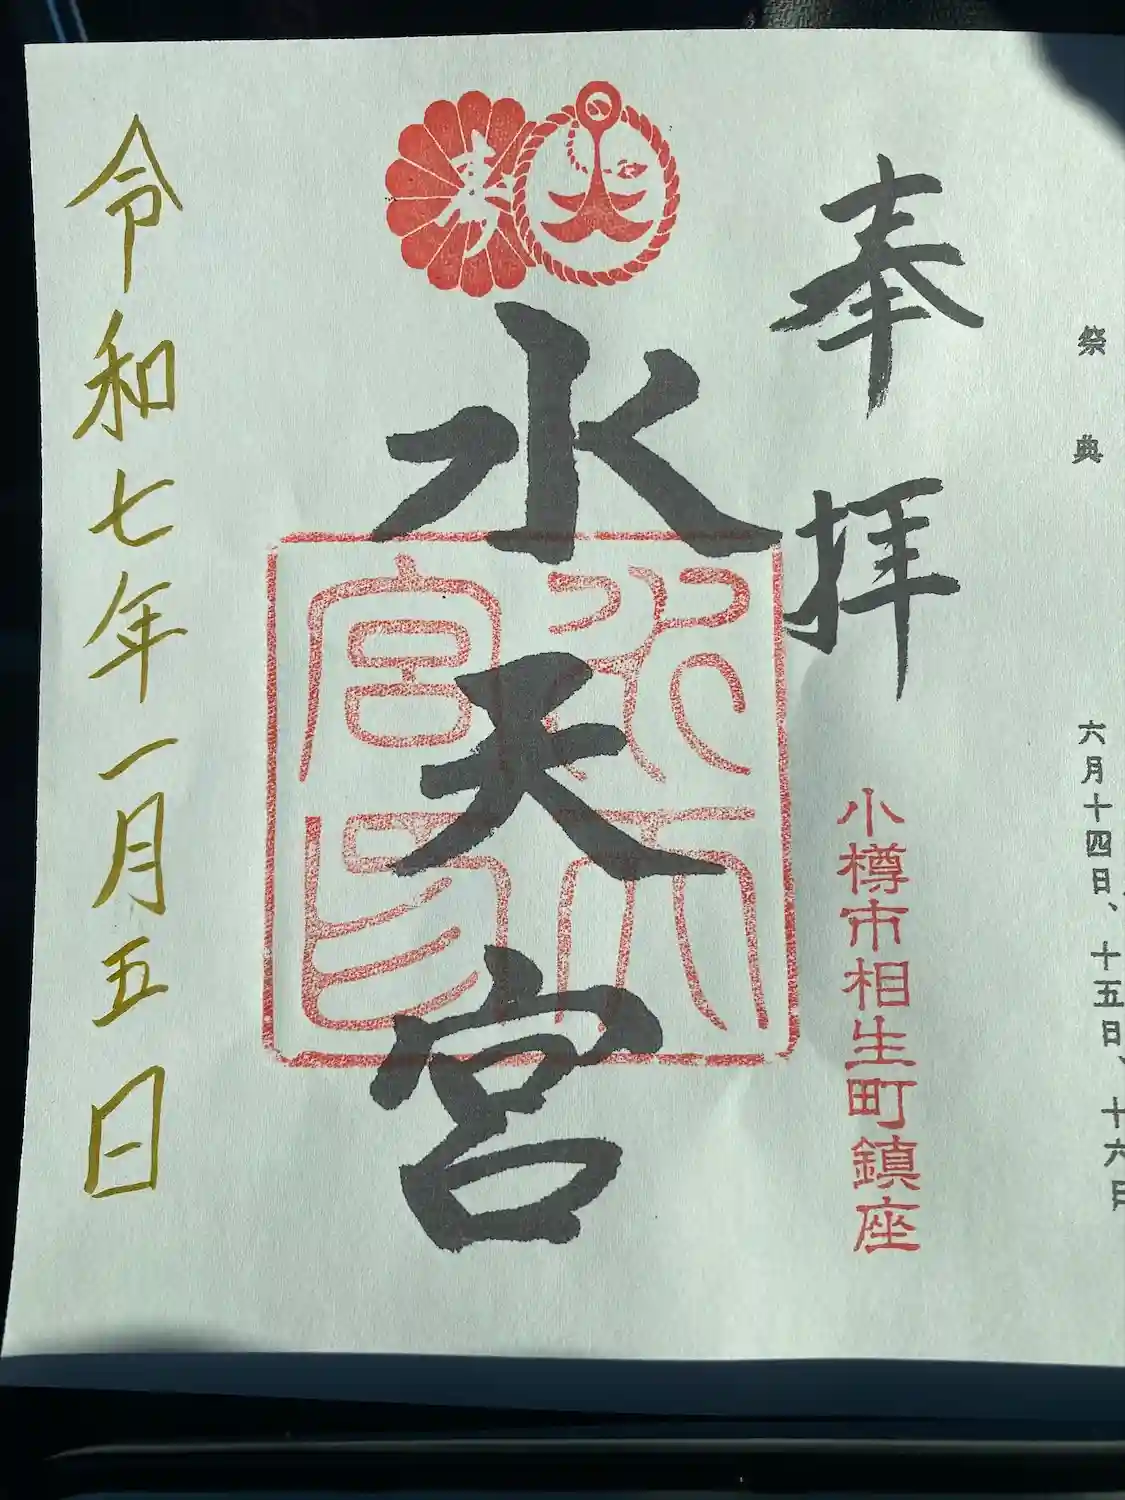 祭典
六月十四日、十五日、十六日
奉拝
小樽市相生町鎮座
寿
水天宮
水天宮印
令和七年一月五日